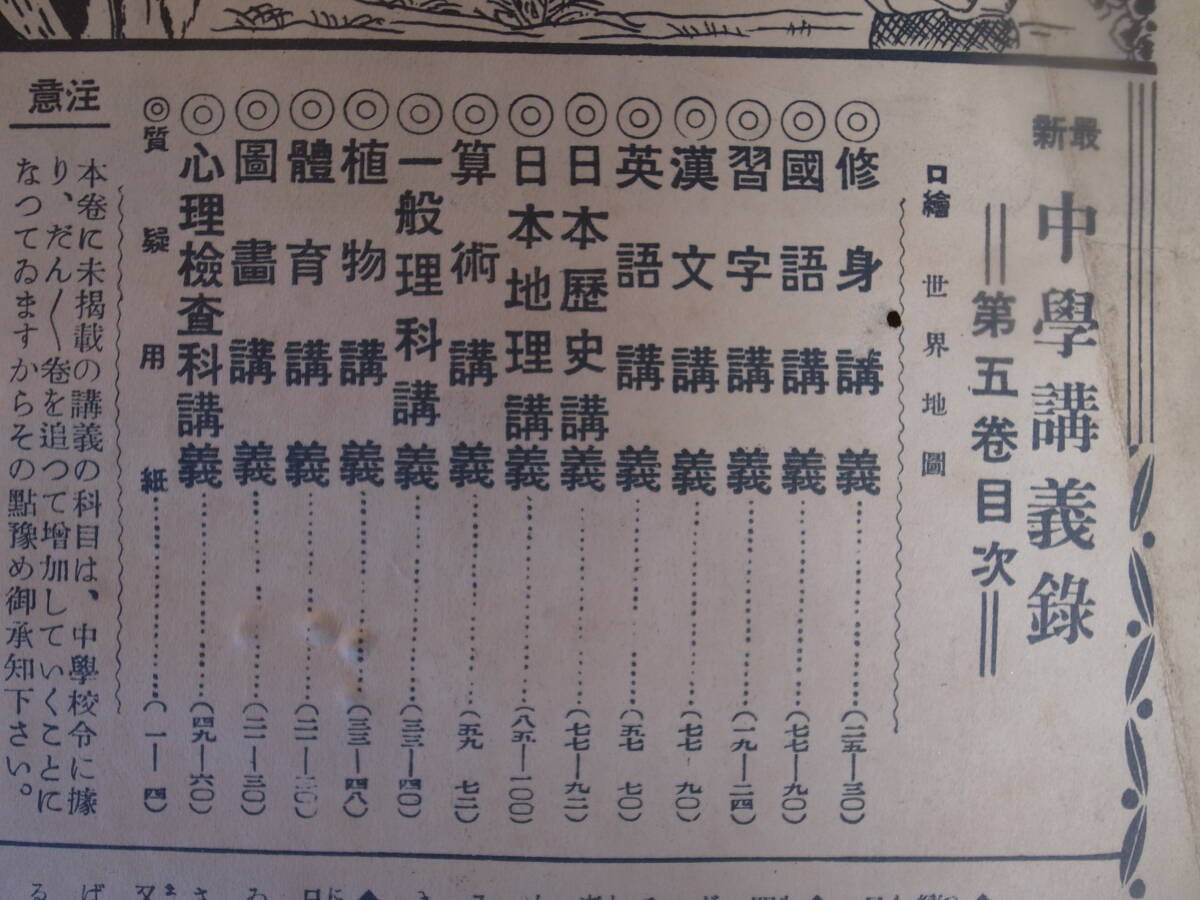 最新
中學講義錄
第五卷目次
口繪 世界地圖
◎修身講義…………(二五—三〇)
◎國語講義…………(七七—九〇)
◎習字講義…………(一九—二四)
◎漢文講義…………(七七 九〇)
◎英語講義…………(五七 七〇)
◎日本歷史講義…………(七七—九二)
◎日本地理講義…………(八五—一〇〇)
◎算術講義…………(五九 七二)
◎一般理科講義…………(三三—四〇)
◎植物講義…………(三三—四八)
◎體育講義…………(二一—三〇)
◎圖畫講義…………(二一—三〇)
◎心理檢査科講義…………(四九—六〇)
◎質疑用紙…………(一—四)
注意
本卷に未揭載の講義の科目は、中學校令に據
り、だん〱卷を追つて增加していくことに
なつてゐますからその點豫め御承知下さい。